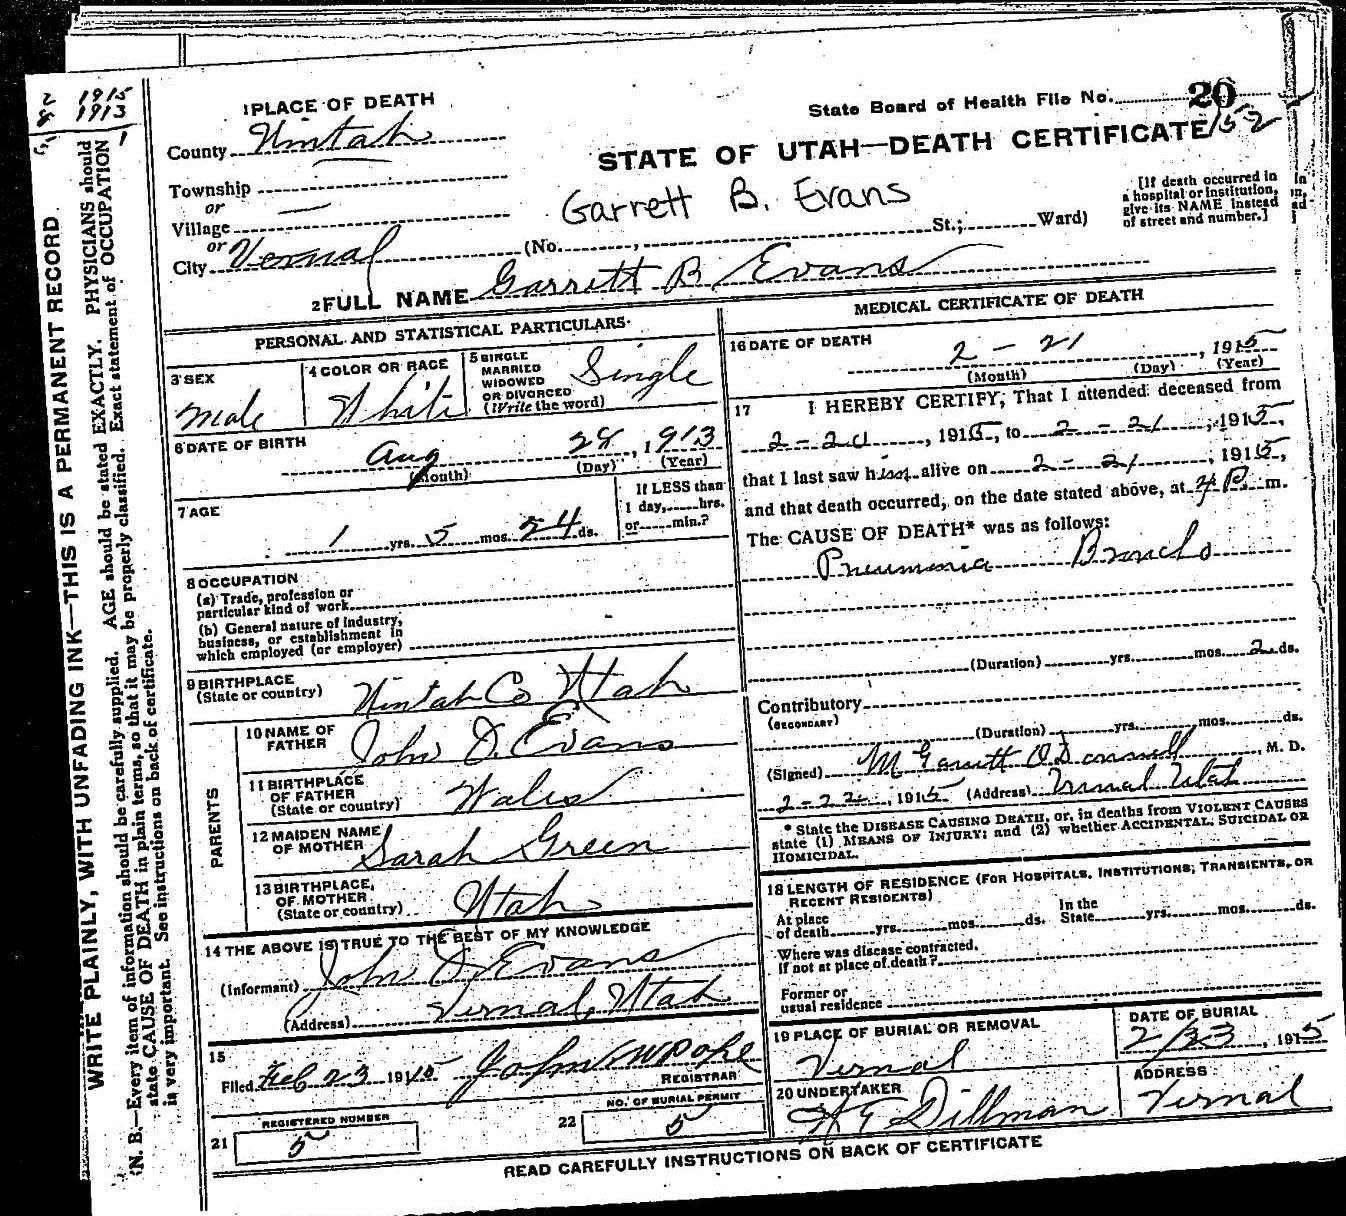 1915
1913
WRITE PLAINLY, WITH UNFADING INK—THIS IS A PERMANENT RECORD
N. B.—Every item of information should be carefully supplied. AGE should be stated EXACTLY. PHYSICIANS should
state CAUSE OF DEATH in plain terms, so that it may be properly classified. Exact statement of OCCUPATION
is very important. See instructions on back of certificate.
1 PLACE OF DEATH
State Board of Health File No. 20
152
County Uintah
STATE OF UTAH—DEATH CERTIFICATE
Township
or
Village
Garrett B. Evans
[If death occurred in
a hospital or institution,
give its NAME instead
of street and number.]
or
City Vernal (No. , St.; Ward)
2 FULL NAME Garrett B Evans
PERSONAL AND STATISTICAL PARTICULARS
3 SEX
Male
4 COLOR OR RACE
White
5 SINGLE
MARRIED
WIDOWED
OR DIVORCED
(Write the word)
Single
6 DATE OF BIRTH
Aug 28, 1913
(Month) (Day) (Year)
7 AGE
1 yrs. 5 mos. 24 ds.
If LESS than
1 day, hrs.
or min.?
8 OCCUPATION
(a) Trade, profession or
particular kind of work
(b) General nature of industry,
business, or establishment in
which employed (or employer)
9 BIRTHPLACE
(State or country) Uintah Co Utah
PARENTS
10 NAME OF
FATHER John D. Evans
11 BIRTHPLACE
OF FATHER
(State or country) Wales
12 MAIDEN NAME
OF MOTHER Sarah Green
13 BIRTHPLACE,
OF MOTHER
(State or country) Utah
14 THE ABOVE IS TRUE TO THE BEST OF MY KNOWLEDGE
(Informant) John D. Evans
(Address) Vernal, Utah
15
Filed Feb 23 1915 John W Pope
REGISTRAR
21 REGISTERED NUMBER
5
22 NO. OF BURIAL PERMIT
5
MEDICAL CERTIFICATE OF DEATH
16 DATE OF DEATH
2 - 21, 1915
(Month) (Day) (Year)
17 I HEREBY CERTIFY, That I attended deceased from
2-20, 1915, to 2-21, 1915,
that I last saw him alive on 2-21, 1915,
and that death occurred, on the date stated above, at 4 P. m.
The CAUSE OF DEATH* was as follows:
Pneumonia Broncho
(Duration) yrs. mos. 2 ds.
Contributory
(SECONDARY)
(Duration) yrs. mos. ds.
(Signed) M Garrett O'Donnell, M. D.
2-22, 1915 (Address) Vernal Utah
* State the DISEASE CAUSING DEATH, or, in deaths from VIOLENT CAUSES
state (1) MEANS OF INJURY; and (2) whether ACCIDENTAL, SUICIDAL OR
HOMICIDAL.
18 LENGTH OF RESIDENCE (FOR HOSPITALS, INSTITUTIONS, TRANSIENTS, OR
RECENT RESIDENTS)
At place
of death yrs. mos. ds.
In the
State yrs. mos. ds.
Where was disease contracted,
if not at place of death?
Former or
usual residence
19 PLACE OF BURIAL OR REMOVAL
Vernal
DATE OF BURIAL
2/23, 1915
20 UNDERTAKER
W E Dillman
ADDRESS
Vernal
READ CAREFULLY INSTRUCTIONS ON BACK OF CERTIFICATE